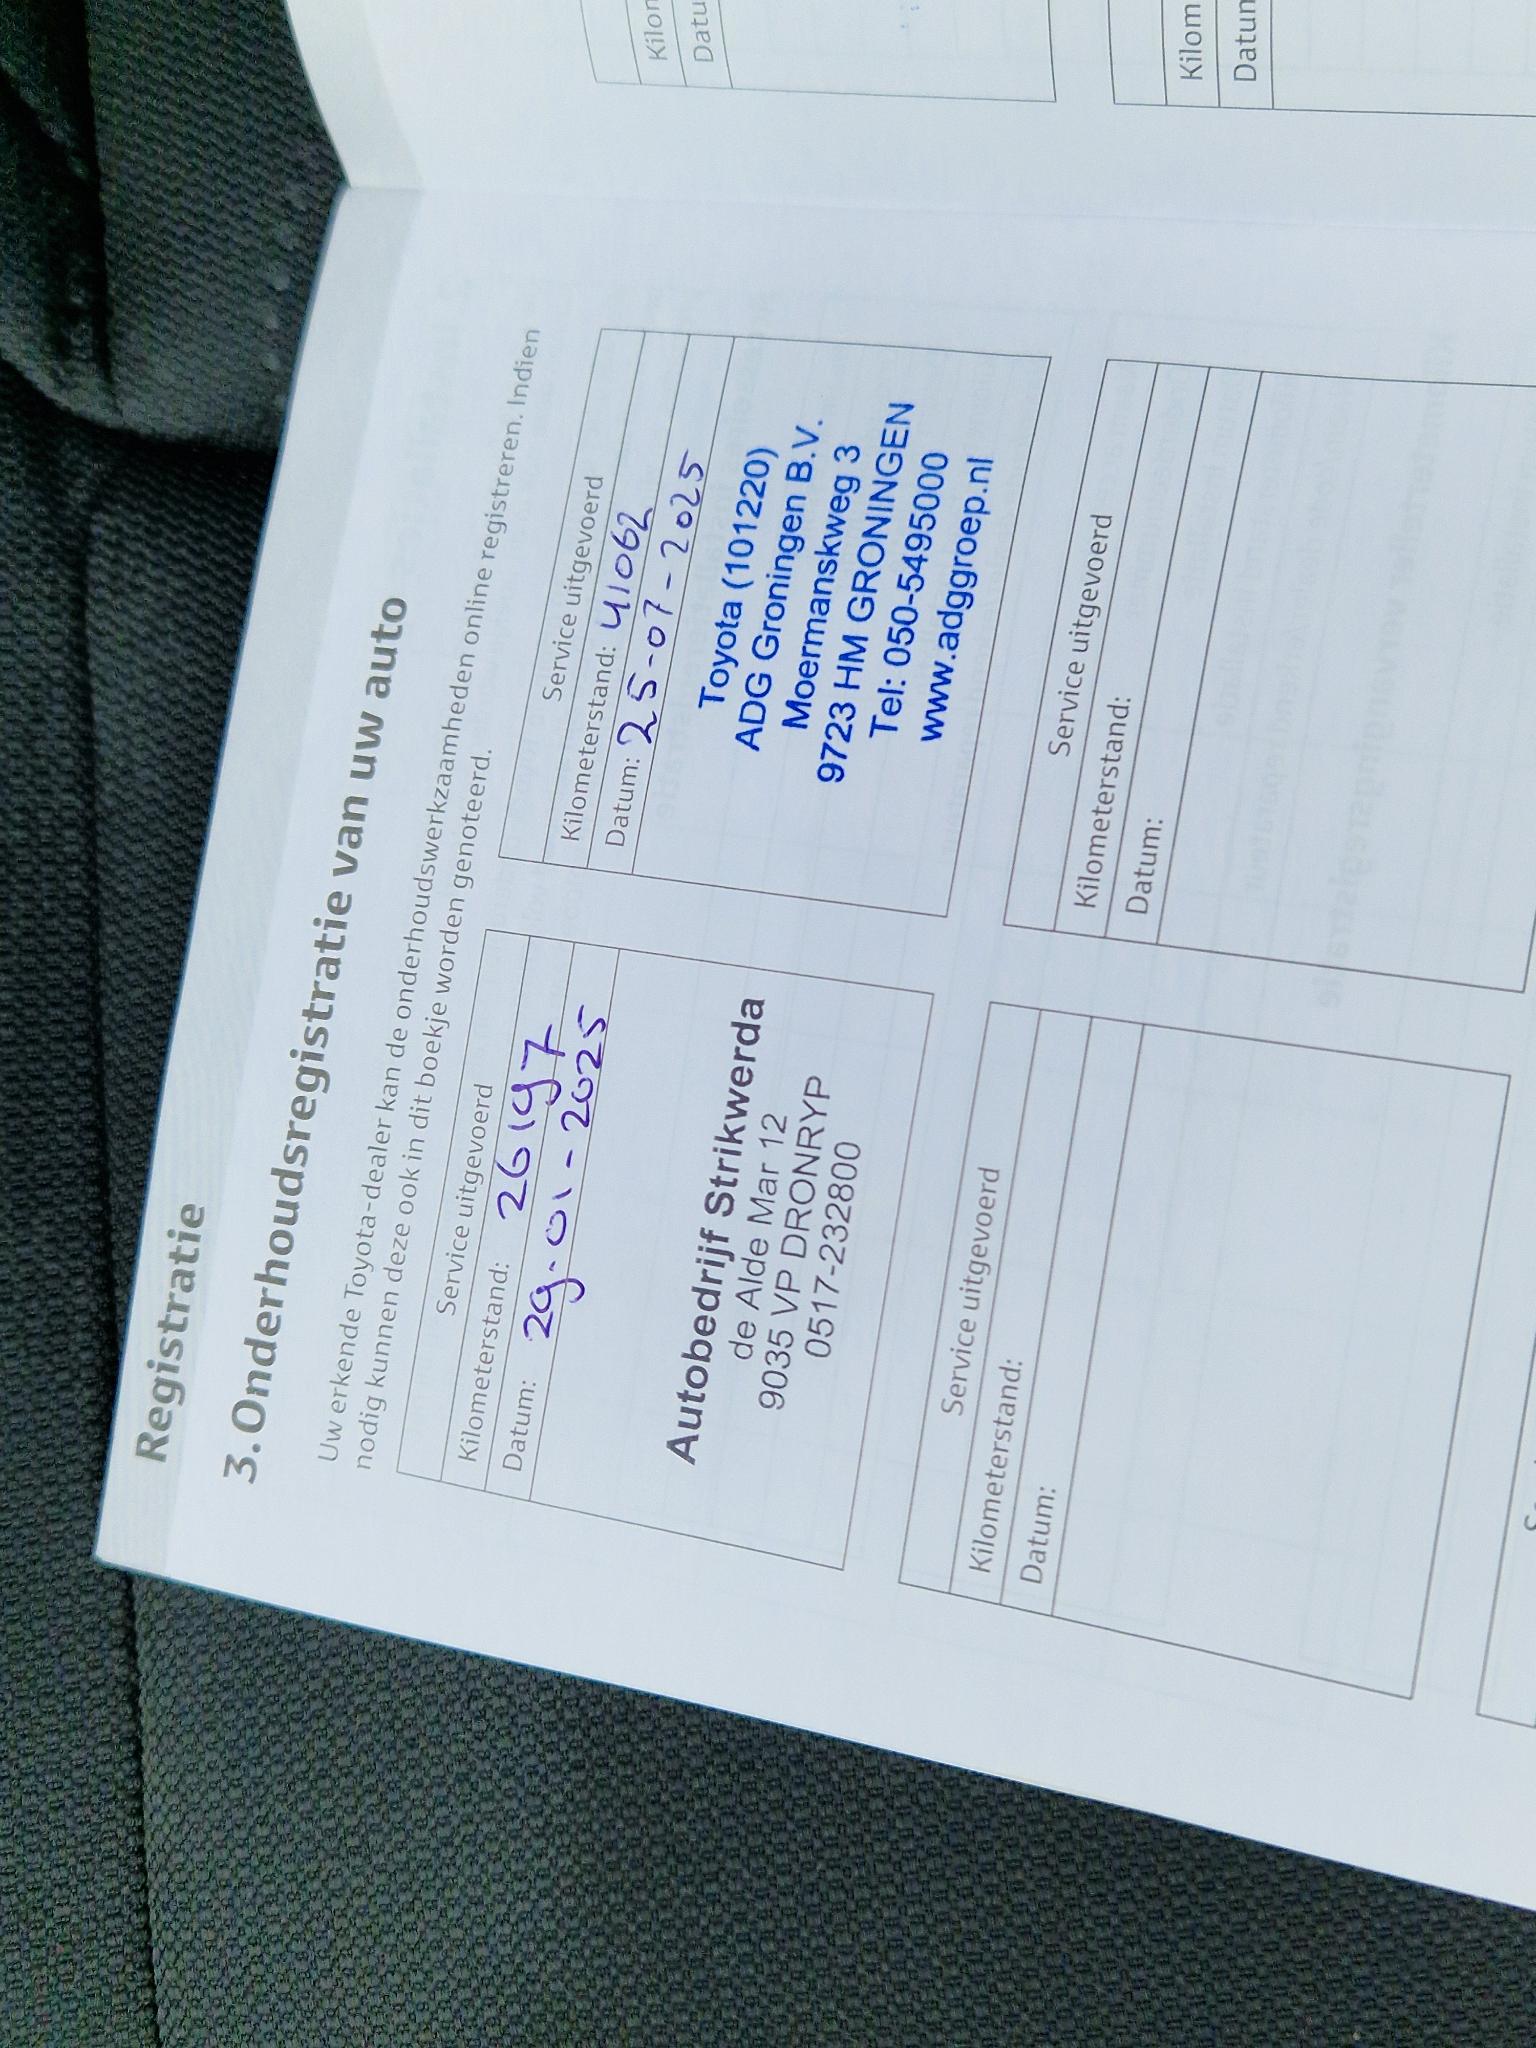 Registratie
3. Onderhoudsregistratie van uw auto
Uw erkende Toyota-dealer kan de onderhoudswerkzaamheden online registreren. Indien
nodig kunnen deze ook in dit boekje worden genoteerd.
Service uitgevoerd
Kilometerstand: 26197
Datum: 29-01-2025
Autobedrijf Strikwerda
de Alde Mar 12
9035 VP DRONRYP
0517-232800
Service uitgevoerd
Kilometerstand: 41062
Datum: 25-07-2025
Toyota (101220)
ADG Groningen B.V.
Moermanskweg 3
9723 HM GRONINGEN
Tel: 050-5495000
www.adggroep.nl
Service uitgevoerd
Kilometerstand:
Datum:
Service uitgevoerd
Kilometerstand:
Datum:
Kilom
Datum